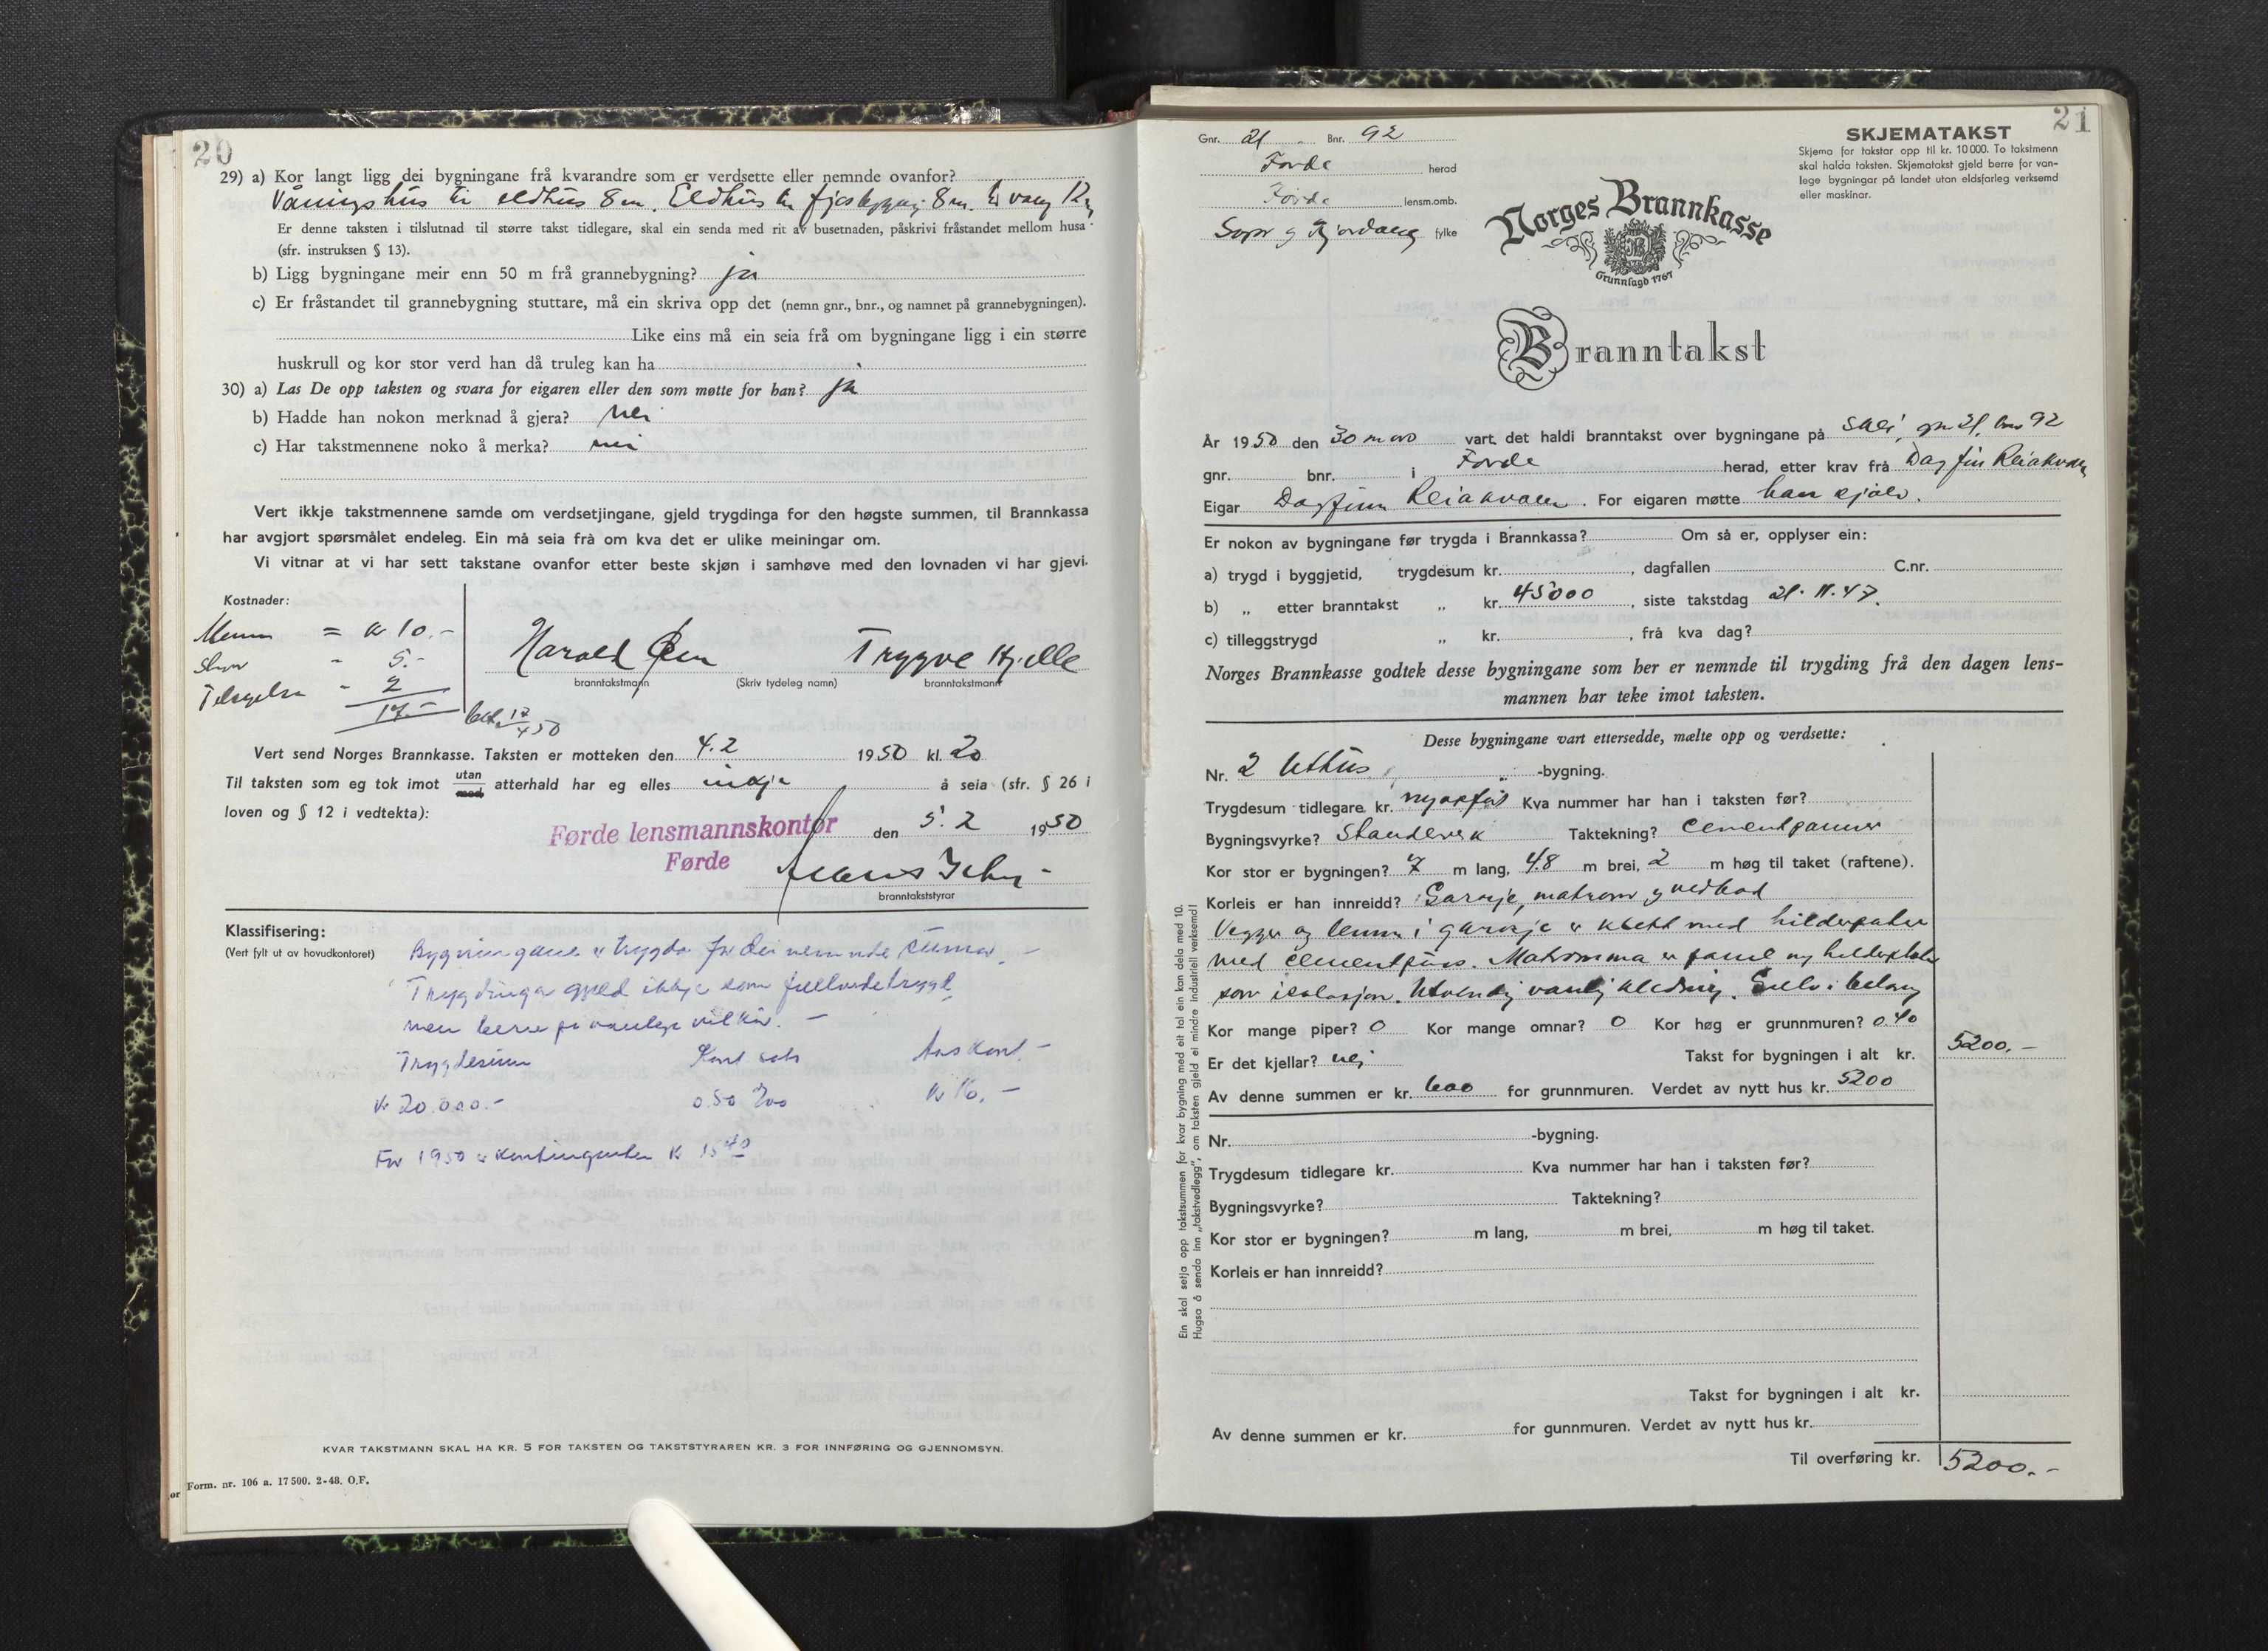 20
29) a) Kor langt ligg dei bygningane frå kvarandre som er verdsette eller nemnde ovanfor?
Våningshus til eldhus 8 m. Eldhus til fjøsbygnig 8 m. 12 m
Er denne taksten i tilslutnad til større takst tidlegare, skal ein senda med rit av busetnaden, påskrivi fråstandet mellom husa
(sfr. instruksen § 13).
b) Ligg bygningane meir enn 50 m frå grannebygning? ja
c) Er fråstandet til grannebygning stuttare, må ein skriva opp det (nemn gnr., bnr., og namnet på grannebygningen).
Like eins må ein seia frå om bygningane ligg i ein større
huskrull og kor stor verd han då truleg kan ha
30) a) Las De opp taksten og svara for eigaren eller den som møtte for han? ja
b) Hadde han nokon merknad å gjera? nei
c) Har takstmennene noko å merka? nei
Vert ikkje takstmennene samde om verdsetjingane, gjeld trygdinga for den høgste summen, til Brannkassa
har avgjort spørsmålet endeleg. Ein må seia frå om kva det er ulike meiningar om.
Vi vitnar at vi har sett takstane ovanfor etter beste skjøn i samhøve med den lovnaden vi har gjevi.
Kostnader:
Menn = kr 10.-
Skriv - 5.-
- 2
17.-
bet. 17/4 50
Harald Øen Trygve Hjelle
branntakstmann (Skriv tydeleg namn) branntakstmann
Vert send Norges Brannkasse. Taksten er motteken den 4.2 1950 kl. 20
Til taksten som eg tok imot utan/med atterhald har eg elles inkje å seia (sfr. § 26 i
loven og § 12 i vedtekta):
Førde lensmannskontor den 5.2 1950
Førde
branntakststyrar
Klassifisering:
(Vert fylt ut av hovudkontoret)
Bygningane er trygda for dei nemnde summar. -
Trygdinga gjeld ikkje som fullverdetrygd,
men berre på vanlege vilkår. -
Trygdesum Kont sats Års kont. -
kr 20.000.- 0.50 ‰ kr 10. -
For 1950 er kontingenten kr 15 40
KVAR TAKSTMANN SKAL HA KR. 5 FOR TAKSTEN OG TAKSTSTYRAREN KR. 3 FOR INNFØRING OG GJENNOMSYN.
Form. nr. 106 a. 17 500. 2-48. O.F.
21
Gnr. 21 Bnr. 92
Førde herad
Førde lensm.omb.
Sogn og Fjordane fylke
SKJEMATAKST
Skjema for takstar opp til kr. 10 000. To takstmenn
skal halda taksten. Skjematakst gjeld berre for van-
lege bygningar på landet utan eldsfarleg verksemd
eller maskinar.
Norges Brannkasse
Grunnlagd 1767
Branntakst
År 1950 den 30 mars vart det haldi branntakst over bygningane på gnr 21, bnr 92
gnr. bnr. i Førde herad, etter krav frå Dagfin Reiakvam
Eigar Dagfinn Reiakvam. For eigaren møtte han sjølv.
Er nokon av bygningane før trygda i Brannkassa? Om så er, opplyser ein:
a) trygd i byggjetid, trygdesum kr. , dagfallen C.nr.
b) „ etter branntakst „ kr. 45000, siste takstdag 21.11.47.
c) tilleggstrygd „ kr. , frå kva dag?
Norges Brannkasse godtek desse bygningane som her er nemnde til trygding frå den dagen lens-
mannen har teke imot taksten.
Desse bygningane vart ettersedde, mælte opp og verdsette:
Nr. 2 Uthus -bygning.
Trygdesum tidlegare kr. nyoppført Kva nummer har han i taksten før?
Bygningsvyrke? Standerverk Taktekning? Cementpanner
Kor stor er bygningen? 7 m lang, 4.8 m brei, 2 m høg til taket (raftene).
Korleis er han innreidd? Garasje, matrom og vedbod
Vegger og lemm i garasje er kledt med hilderplater
med cementpuss. Matromma er panel og hilderplater
som isolasjon. Utvendig vanlig kledning. Gulv i betong
Kor mange piper? 0 Kor mange omnar? 0 Kor høg er grunnmuren? 0.40
Er det kjellar? nei Takst for bygningen i alt kr. 5200.-
Av denne summen er kr. 600 for grunnmuren. Verdet av nytt hus kr. 5200
Nr. -bygning.
Trygdesum tidlegare kr. Kva nummer har han i taksten før?
Bygningsvyrke? Taktekning?
Kor stor er bygningen? m lang, m brei, m høg til taket.
Korleis er han innreidd?
Takst for bygningen i alt kr.
Av denne summen er kr. for gunnmuren. Verdet av nytt hus kr.
Til overføring kr. 5200.-
Ein skal setja opp takstsummen for kvar bygning med eit tal ein kan dela med 10.
Hugsa å senda inn „takstvedlegg", om taksten gjeld ei mindre industriell verksemd!